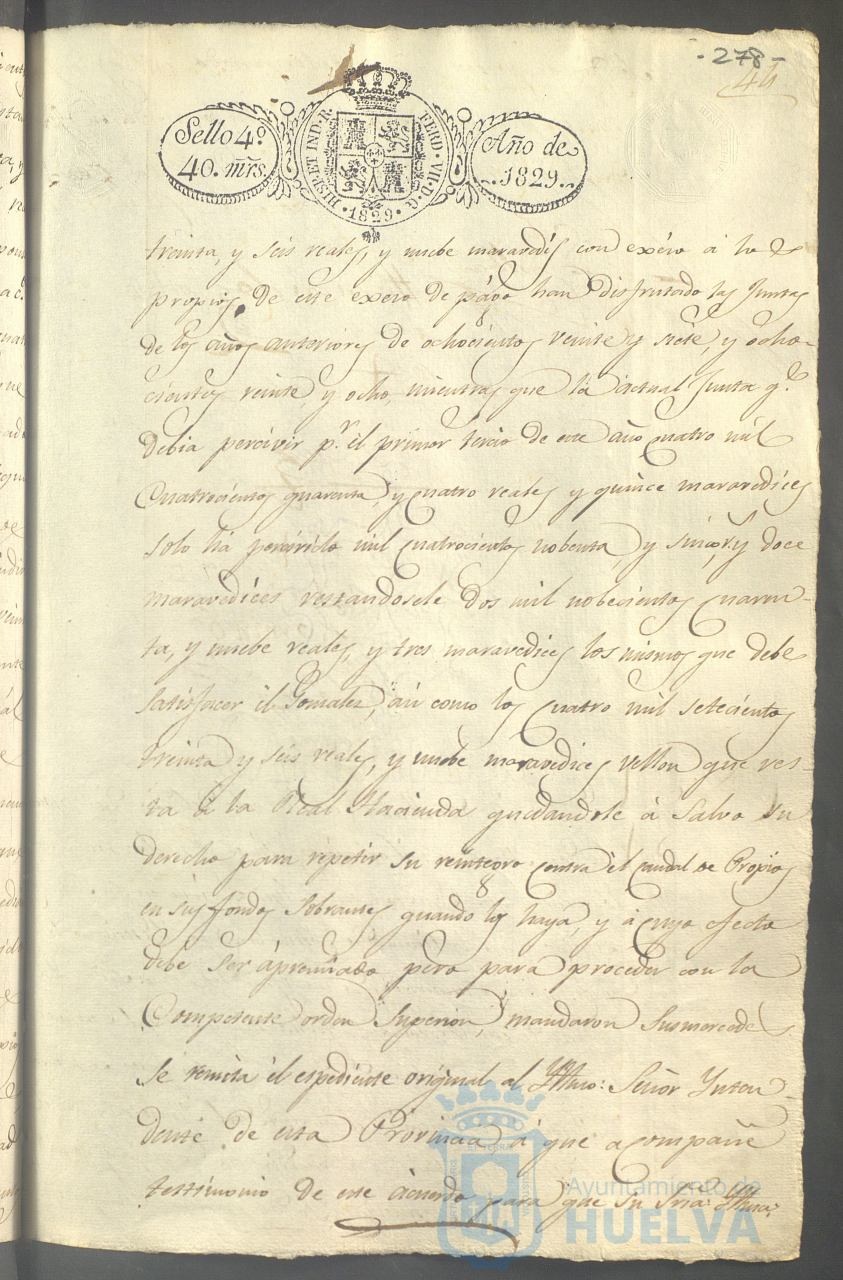 - 278 -
44
Sello 4º
40. mrs.
HISP. ET IND. R.
FERD. VII. D. G.
1829
Año de
1829.
treinta, y seis reales, y nuebe maravedis con exceso á los
propios, de este exceso de pago han disfrutado las Juntas
de los años anteriores de ochocientos veinte y siete, y ocho-
cientos veinte, y ocho, mientras que la actual Junta q.e
debia percivir p.r el primer tercio de este año quatro mil
Cuatrocientos quarenta, y quatro reales y quince maravedices
solo há percivido mil quatrocientos nobenta, y sinco r.s y doce
maravedices restandosele dos mil nobecientos quaren-
ta, y nuebe reales, y tres maravedices los mismos que debe
satisfacer el Gonzalez, asi como los quatro mil setecientos
treinta y seis reales, y nuebe maravedices vellon que res-
ta á la Real Hacienda quedandole á salvo su
derecho para repetir su reintegro contra el caudal de Propios
en sus fondos sobrantes quando los haya, y á cuyo efecto
debe ser ápremiado, pero para proceder con la
Competente orden Superior, mandaron Susmercedes
se remita el espediente original al Yltmo: Señor Ynten-
dente de esta Provincia á que acompañe
testimonio de este ácuerdo para que Su Sria. Yltma.
Ayuntamiento de
HUELVA